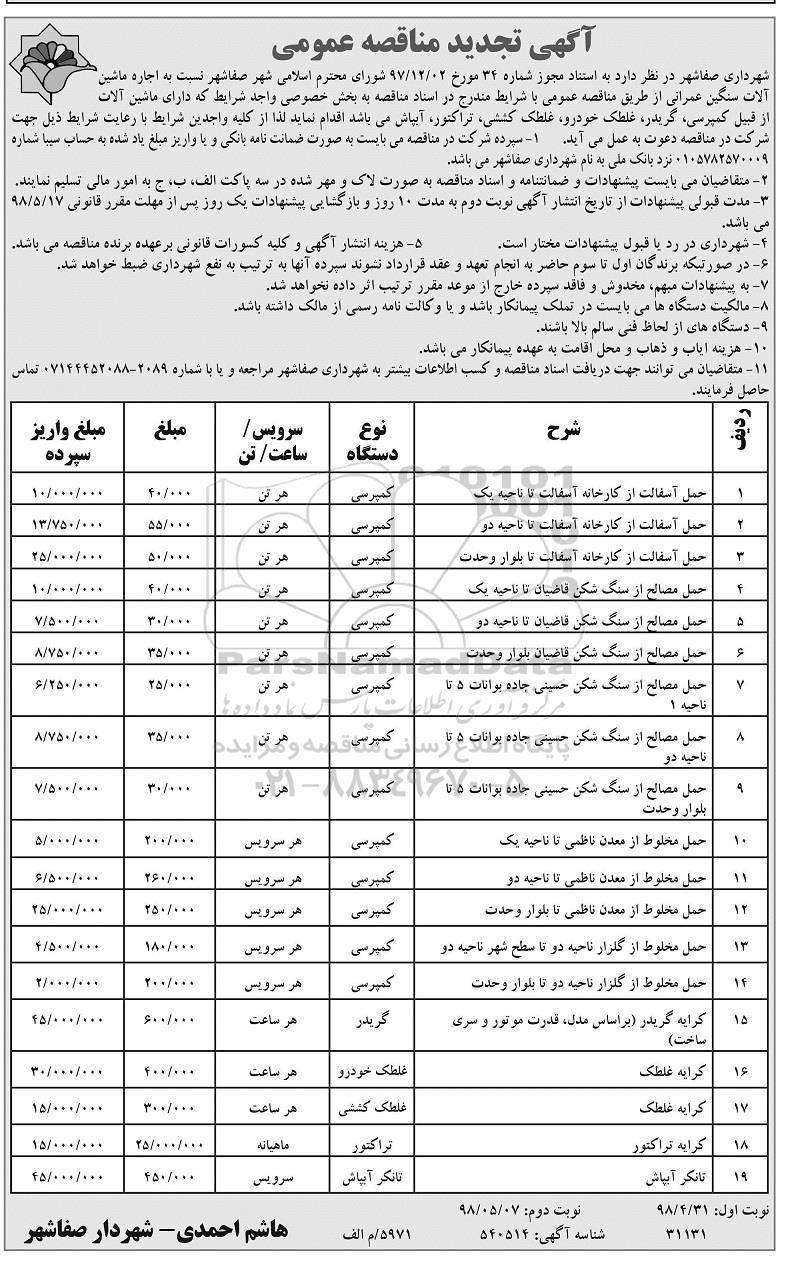 آگهی تجدید مناقصه عمومی
شهرداری صفاشهر در نظر دارد به استناد مجوز شماره ۳۴ مورخ ۹۷/۱۲/۰۲ شورای محترم اسلامی شهر صفاشهر نسبت به اجاره ماشین
آلات سنگین عمرانی از طریق مناقصه عمومی با شرایط مندرج در اسناد مناقصه به بخش خصوصی واجد شرایط که دارای ماشین آلات
از قبیل کمپرسی، گریدر، غلطک خودرو، غلطک کششی، تراکتور، آبپاش می باشد اقدام نماید لذا از کلیه واجدین شرایط با رعایت شرایط ذیل جهت
شرکت در مناقصه دعوت به عمل می آید. ۱- سپرده شرکت در مناقصه می بایست به صورت ضمانت نامه بانکی و یا واریز مبلغ یاد شده به حساب سیبا شماره
۰۱۰۵۷۸۲۵۷۰۰۰۹ نزد بانک ملی به نام شهرداری صفاشهر می باشد.
۲- متقاضیان می بایست پیشنهادات و ضمانتنامه و اسناد مناقصه به صورت لاک و مهر شده در سه پاکت الف، ب، ج به امور مالی تسلیم نمایند.
۳- مدت قبولی پیشنهادات از تاریخ انتشار آگهی نوبت دوم به مدت ۱۰ روز و بازگشایی پیشنهادات یک روز پس از مهلت مقرر قانونی ۹۸/۵/۱۷
می باشد.
۴- شهرداری در رد یا قبول پیشنهادات مختار است. ۵- هزینه انتشار آگهی و کلیه کسورات قانونی برعهده برنده مناقصه می باشد.
۶- در صورتیکه برندگان اول تا سوم حاضر به انجام تعهد و عقد قرارداد نشوند سپرده آنها به ترتیب به نفع شهرداری ضبط خواهد شد.
۷- به پیشنهادات مبهم، مخدوش و فاقد سپرده خارج از موعد مقرر ترتیب اثر داده نخواهد شد.
۸- مالکیت دستگاه ها می بایست در تملک پیمانکار باشد و یا وکالت نامه رسمی از مالک داشته باشد.
۹- دستگاه های از لحاظ فنی سالم بالا باشند.
۱۰- هزینه ایاب و ذهاب و محل اقامت به عهده پیمانکار می باشد.
۱۱- متقاضیان می توانند جهت دریافت اسناد مناقصه و کسب اطلاعات بیشتر به شهرداری صفاشهر مراجعه و یا با شماره ۲۰۸۹-۰۷۱۴۴۴۵۲۰۸۸ تماس
حاصل فرمایند.
ردیف شرح نوع دستگاه سرویس/ ساعت/ تن مبلغ مبلغ واریز سپرده
۱ حمل آسفالت از کارخانه آسفالت تا ناحیه یک کمپرسی هر تن ۴۰/۰۰۰ ۱۰/۰۰۰/۰۰۰
۲ حمل آسفالت از کارخانه آسفالت تا ناحیه دو کمپرسی هر تن ۵۵/۰۰۰ ۱۳/۷۵۰/۰۰۰
۳ حمل آسفالت از کارخانه آسفالت تا بلوار وحدت کمپرسی هر تن ۵۰/۰۰۰ ۲۵/۰۰۰/۰۰۰
۴ حمل مصالح از سنگ شکن قاضیان تا ناحیه یک کمپرسی هر تن ۴۰/۰۰۰ ۱۰/۰۰۰/۰۰۰
۵ حمل مصالح از سنگ شکن قاضیان تا ناحیه دو کمپرسی هر تن ۳۰/۰۰۰ ۷/۵۰۰/۰۰۰
۶ حمل مصالح از سنگ شکن قاضیان بلوار وحدت کمپرسی هر تن ۳۵/۰۰۰ ۸/۷۵۰/۰۰۰
۷ حمل مصالح از سنگ شکن حسینی جاده بوانات ۵ تا ناحیه ۱ کمپرسی هر تن ۲۵/۰۰۰ ۶/۲۵۰/۰۰۰
۸ حمل مصالح از سنگ شکن حسینی جاده بوانات ۵ تا ناحیه دو کمپرسی هر تن ۳۵/۰۰۰ ۸/۷۵۰/۰۰۰
۹ حمل مصالح از سنگ شکن حسینی جاده بوانات ۵ تا بلوار وحدت کمپرسی هر تن ۳۰/۰۰۰ ۷/۵۰۰/۰۰۰
۱۰ حمل مخلوط از معدن ناظمی تا ناحیه یک کمپرسی هر سرویس ۲۰۰/۰۰۰ ۵/۰۰۰/۰۰۰
۱۱ حمل مخلوط از معدن ناظمی تا ناحیه دو کمپرسی هر سرویس ۲۶۰/۰۰۰ ۶/۵۰۰/۰۰۰
۱۲ حمل مخلوط از معدن ناظمی تا بلوار وحدت کمپرسی هر سرویس ۲۵۰/۰۰۰ ۲۵/۰۰۰/۰۰۰
۱۳ حمل مخلوط از گلزار ناحیه دو تا سطح شهر ناحیه دو کمپرسی هر سرویس ۱۸۰/۰۰۰ ۴/۵۰۰/۰۰۰
۱۴ حمل مخلوط از گلزار ناحیه دو تا بلوار وحدت کمپرسی هر سرویس ۲۰۰/۰۰۰ ۲/۰۰۰/۰۰۰
۱۵ کرایه گریدر (براساس مدل، قدرت موتور و سری ساخت) گریدر هر ساعت ۶۰۰/۰۰۰ ۴۵/۰۰۰/۰۰۰
۱۶ کرایه غلطک غلطک خودرو هر ساعت ۴۰۰/۰۰۰ ۳۰/۰۰۰/۰۰۰
۱۷ کرایه غلطک غلطک کششی هر ساعت ۳۰۰/۰۰۰ ۱۵/۰۰۰/۰۰۰
۱۸ کرایه تراکتور تراکتور ماهیانه ۲۵/۰۰۰/۰۰۰ ۱۵/۰۰۰/۰۰۰
۱۹ تانکر آبپاش تانکر آبپاش سرویس ۴۵۰/۰۰۰ ۴۵/۰۰۰/۰۰۰
ParsNamadData
مرکز فرآوری اطلاعات پارس نماد داده ها
پایگاه اطلاع رسانی مناقصه و مزایده
۰۲۱-۸۸۳۴۹۶۷۰-۵
نوبت اول: ۹۸/۴/۳۱ نوبت دوم: ۹۸/۰۵/۰۷
۳۱۱۳۱ شناسه آگهی: ۵۴۰۵۱۴ ۵۹۷۱/م الف
هاشم احمدی- شهردار صفاشهر